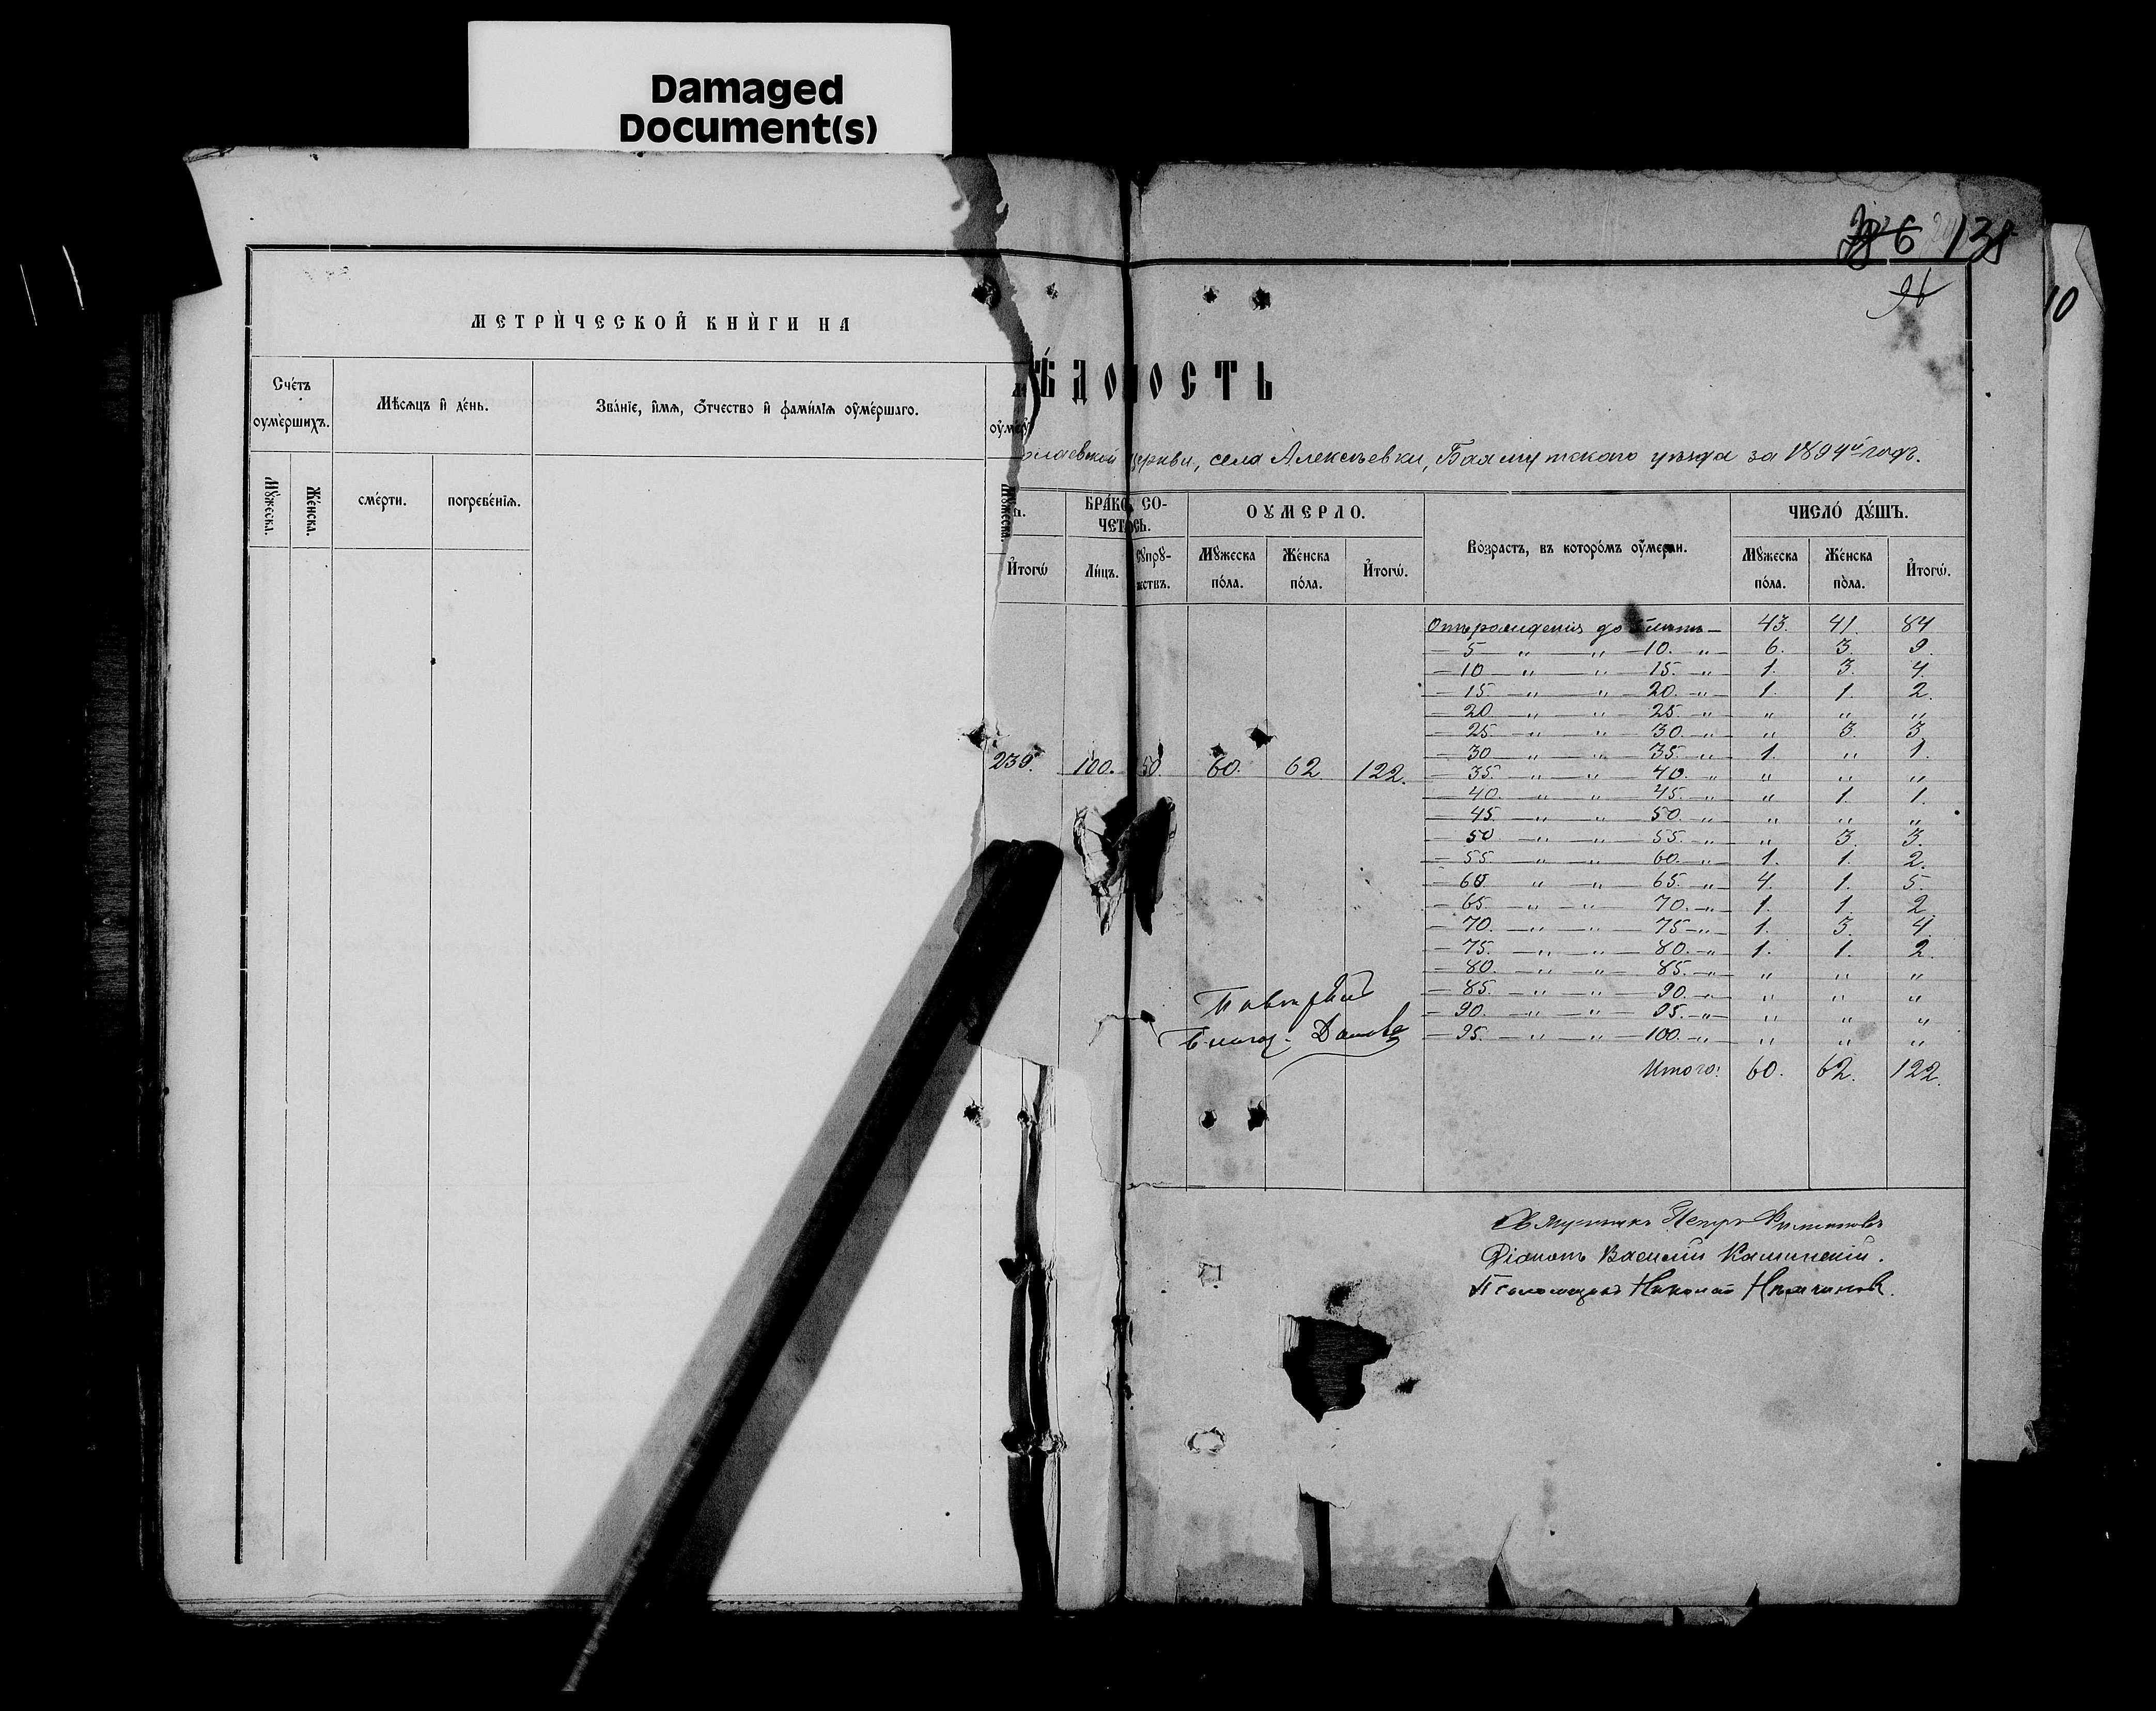 Damaged
Document(s)
6 138
96
10
МЕТРИ́ЧЕСКОЙ КНИ́ГИ НА
Сче́тъ оумершихъ.
Мѣсяцъ и де́нь.
Зва́нїе, и́мѧ, ѻ҆́тчество и҆ фами́лїѧ оу҆ме́ршагѡ.
Мꙋ́жеска.
Же́нска.
сме́рти.
погребе́нїѧ.
ѢДОМОСТЬ
олаевской церкви, села Алексѣевки, Бахмутскаго уѣзда за 1894й годъ.
БРА́КОМЪ СО-ЧЕТА́СЬ.
ОУМЕРЛО.
Во́зрастъ, въ кото́ромъ оу҆ме́рли.
ЧИСЛО́ ДꙊ́ШЪ.
И҆тогѡ̀
Ли́цъ.
сꙋпрꙋ́-жствъ.
Мꙋ́жеска по́ла.
Же́нска по́ла.
И҆тогѡ̀.
Мꙋ́жеска по́ла.
Же́нска по́ла.
И҆тогѡ̀.
Отъ рожденія до лѣтъ — 43. 41. 84
— 5 — „ — „ — 10. — „ — 6. 3. 9.
— 10 — „ — „ — 15. — „ — 1. 3. 4.
— 15 — „ — „ — 20. — „ — 1. 1. 2.
— 20 — „ — „ — 25. — „ — „ „ „
— 25 — „ — „ — 30. — „ — „ 3. 3
— 30 — „ — „ — 35. — „ — 1. „ 1.
239. 100. 50. 60. 62 122.
— 35. — „ — „ — 40. — „ — „ „ „
— 40. — „ — „ — 45. — „ — „ 1. 1.
— 45. — „ — „ — 50. — „ — „ „ „
— 50 — „ — „ — 55. — „ — „ 3. 3.
— 55. — „ — „ — 60. — „ — 1. 1. 2.
— 60. — „ — „ — 65. — „ — 4. 1. 5.
— 65. — „ — „ — 70. — „ — 1. 1. 2
— 70. — „ — „ — 75 — „ — 1. 3. 4.
— 75. — „ — „ — 80. — „ — 1. 1. 2.
— 80. — „ — „ — 85. — „ — „ „ „
— 85. — „ — „ — 90. — „ — „ „ „
— 90. — „ — „ — 95. — „ — „ „ „
— 95. — „ — „ — 100. — „ — „ „ „
Итого: 60. 62. 122.
Петръ Филипповъ
Діаконъ Василій
Псаломщикъ Николай